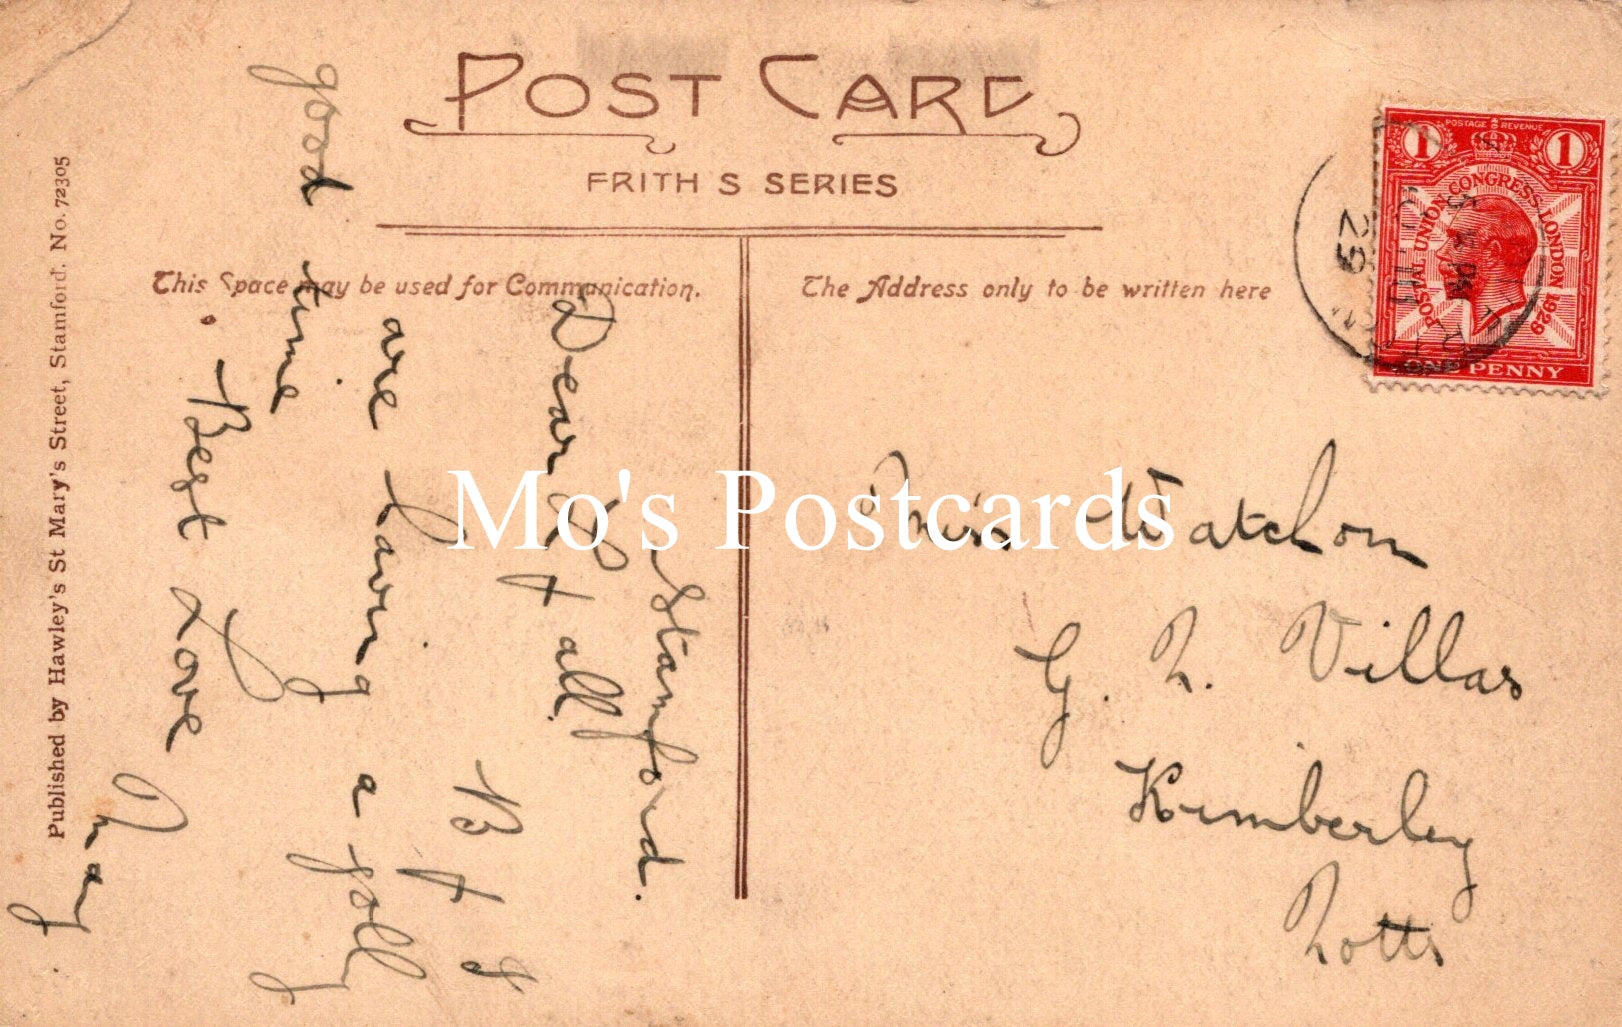 POST CARD
FRITH S SERIES
This Space may be used for Communication.
The Address only to be written here
Published by Hawley's St Mary's Street, Stamford. No. 72305
POSTAGE REVENUE
1 1
POSTAL UNION CONGRESS LONDON 1929
ONE PENNY
29
Stamford.
Dear L + all.
B + I
are having a jolly
good time
Best Love
May.
Miss Watchon
G. N. Villas
Kimberley
Notts
Mo's Postcards